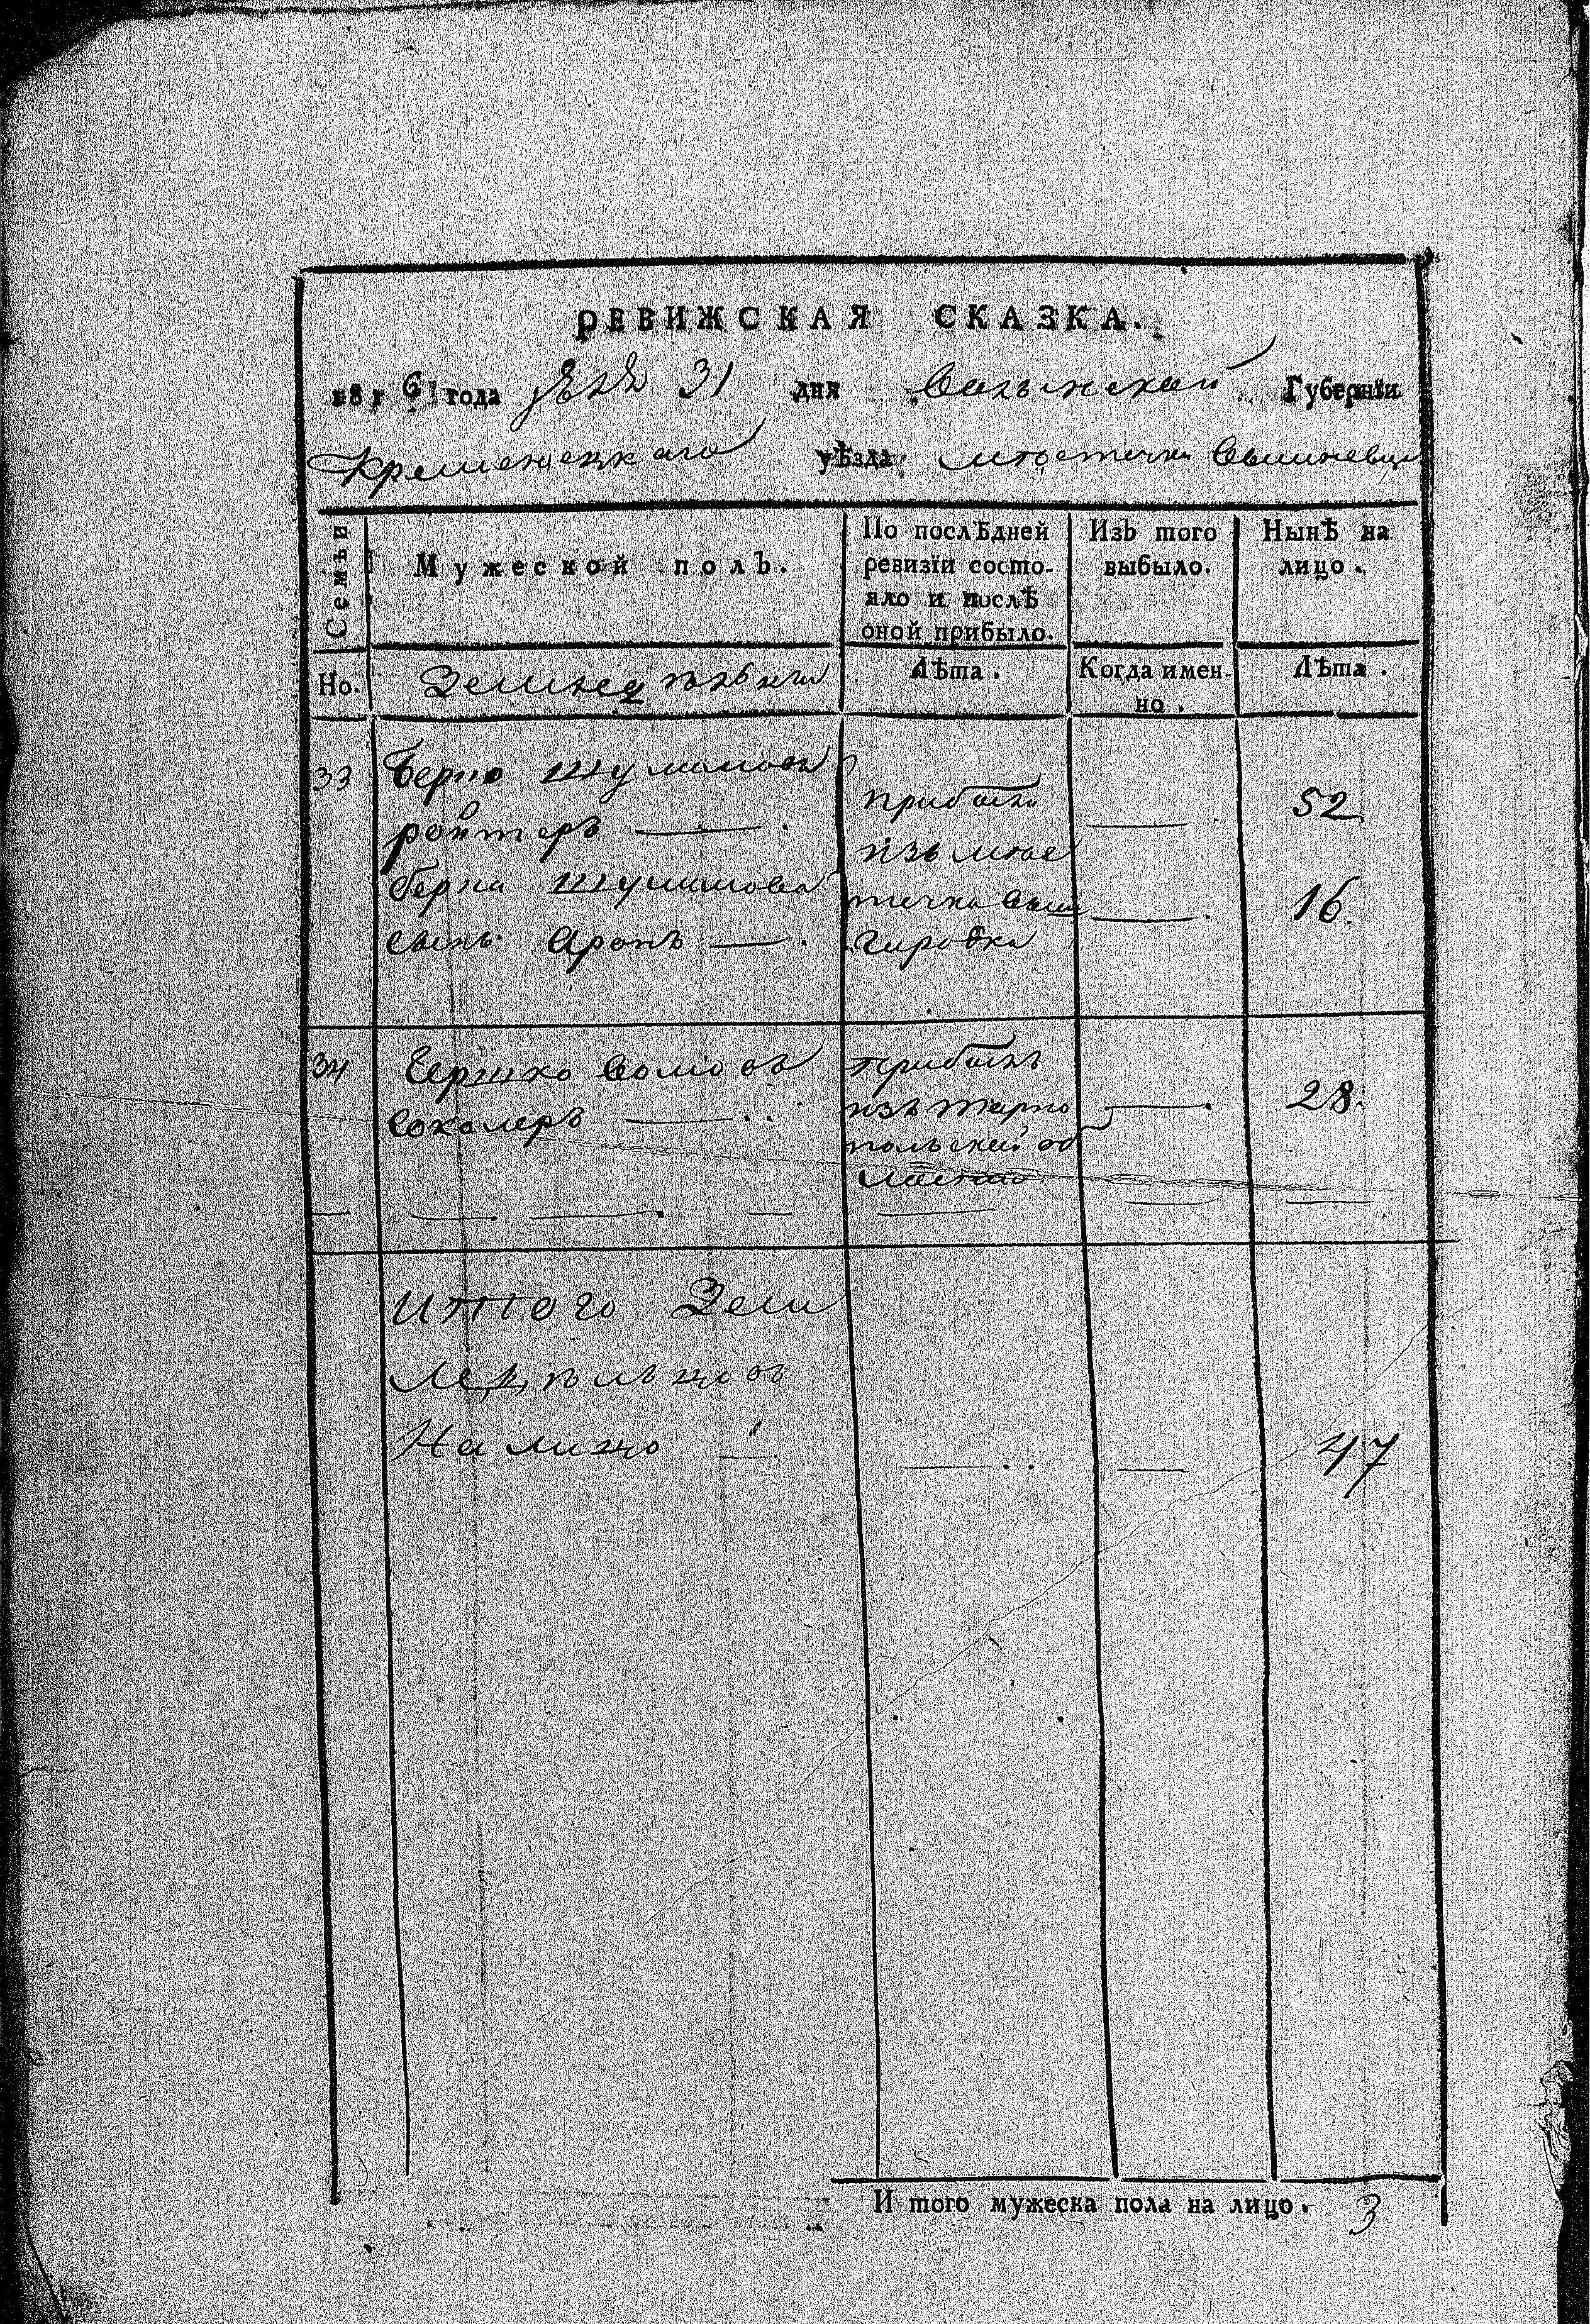 РЕВИЖСКАЯ СКАЗКА.
года 31 дня Волынской Губернїи
Кременецкаго уѣзда местечка Вишневца
Семьи
Мужеской полъ.
По послѣдней ревизїи состо-
яло и послѣ
оной прибыло.
Изъ того выбыло.
Нынѣ на лицо.
Но.
Лѣта.
Когда имен-
но.
Лѣта.
33 Берко Шулимовъ
ройтеръ — 52
Берка Шулимова
сынъ Аронъ — 16.
прибыли
изъ мѣс
течка Выш
городка
34 Гершко
Сокалеръ — 28.
прибылъ
изъ тарно
польской об
ласти
Итого Зем
ледѣльцовъ
На лицо — 47
И того мужеска пола на лицо. 3